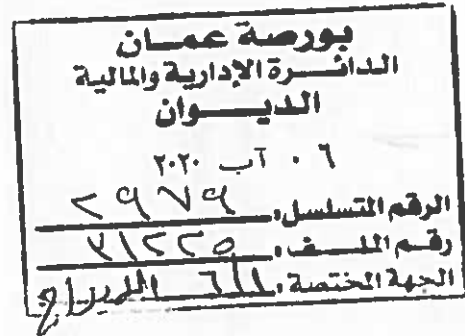 بورصة عمان
الدائرة الإدارية والمالية
الديوان
٠٦ آب ٢٠٢٠
الرقم المتسلسل: ٢٩٧٩
رقم الملف: ٣١٢٢٥
الجهة المختصة: